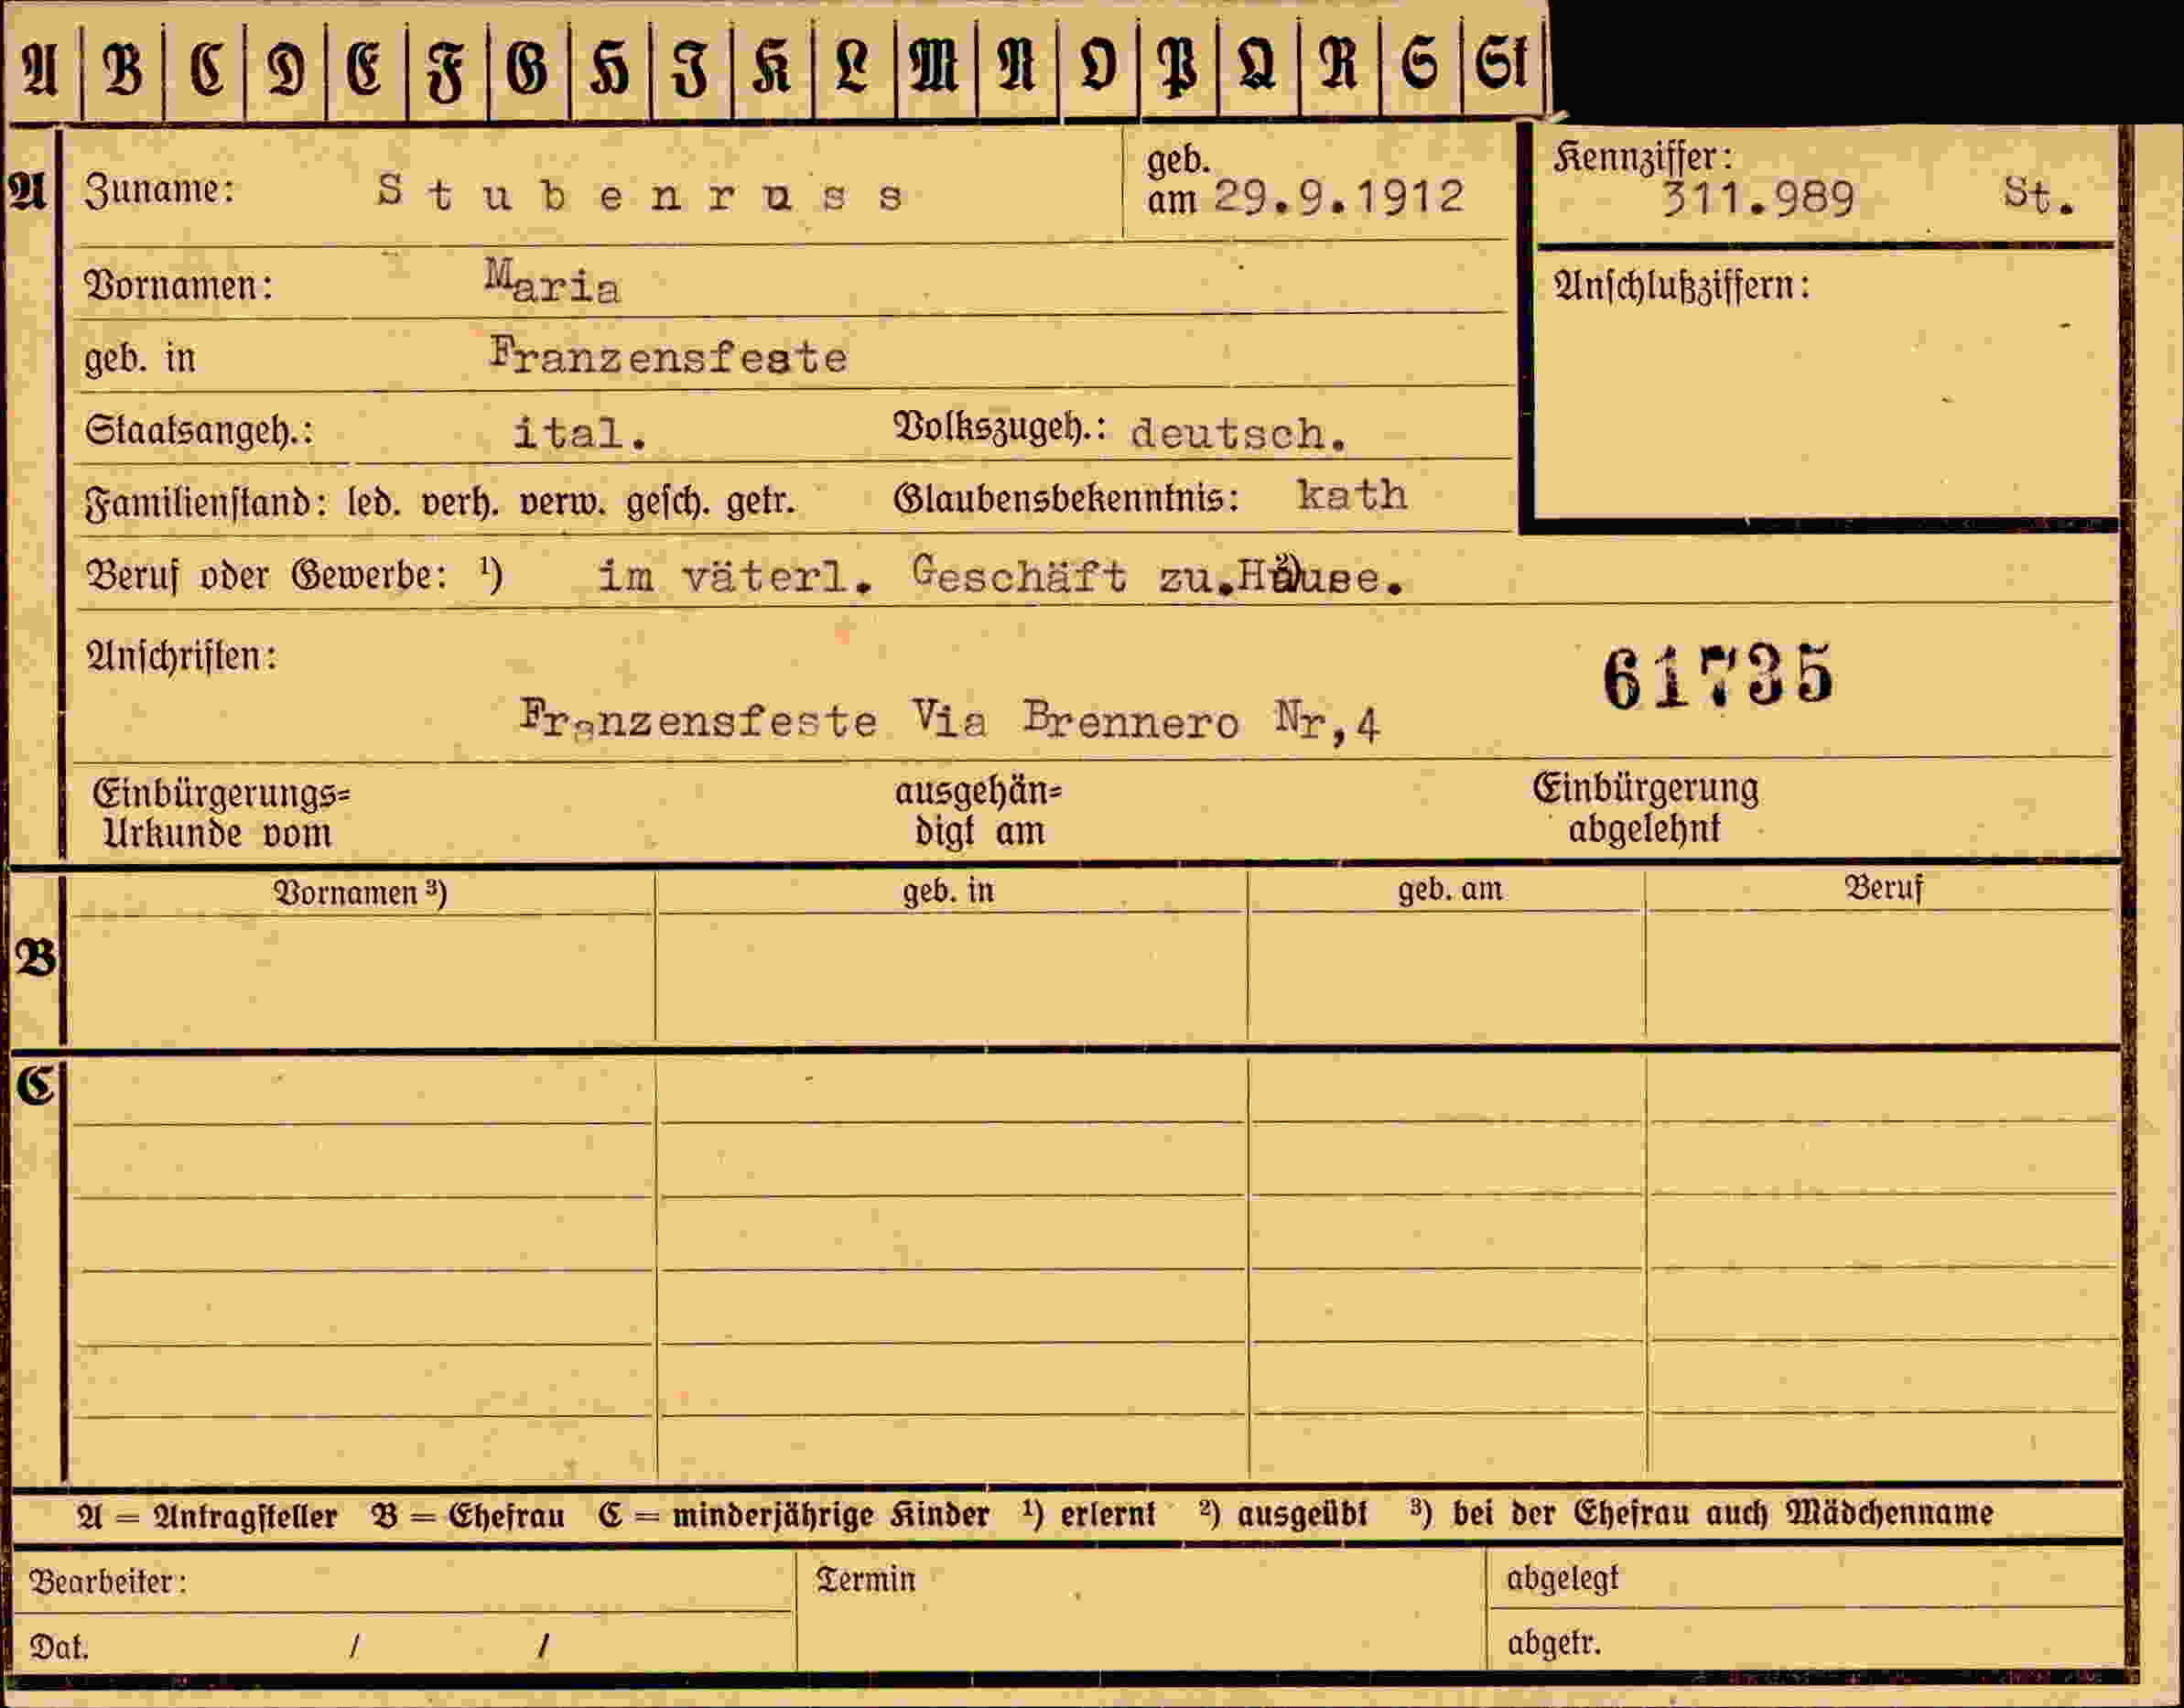 A B C D E F G H I K L M N O P Q R S St
A Zuname: Stubenruss geb. am 29.9.1912 Kennziffer: 311.989 St.
Vornamen: Maria Anschlußziffern:
geb. in Franzensfeste
Staatsangeh.: ital. Volkszugeh.: deutsch.
Familienstand: led. verh. verw. gesch. getr. Glaubensbekenntnis: kath
Beruf oder Gewerbe: ¹) im väterl. Geschäft zu.Hause. ²)
Anschriften: 61735
Franzensfeste Via Brennero Nr,4
Einbürgerungs= ausgehän= Einbürgerung
Urkunde vom digt am abgelehnt
Vornamen ³) geb. in geb. am Beruf
B
C
A = Antragsteller B = Ehefrau C = minderjährige Kinder ¹) erlernt ²) ausgeübt ³) bei der Ehefrau auch Mädchenname
Bearbeiter: Termin abgelegt
Dat. / / abgetr.